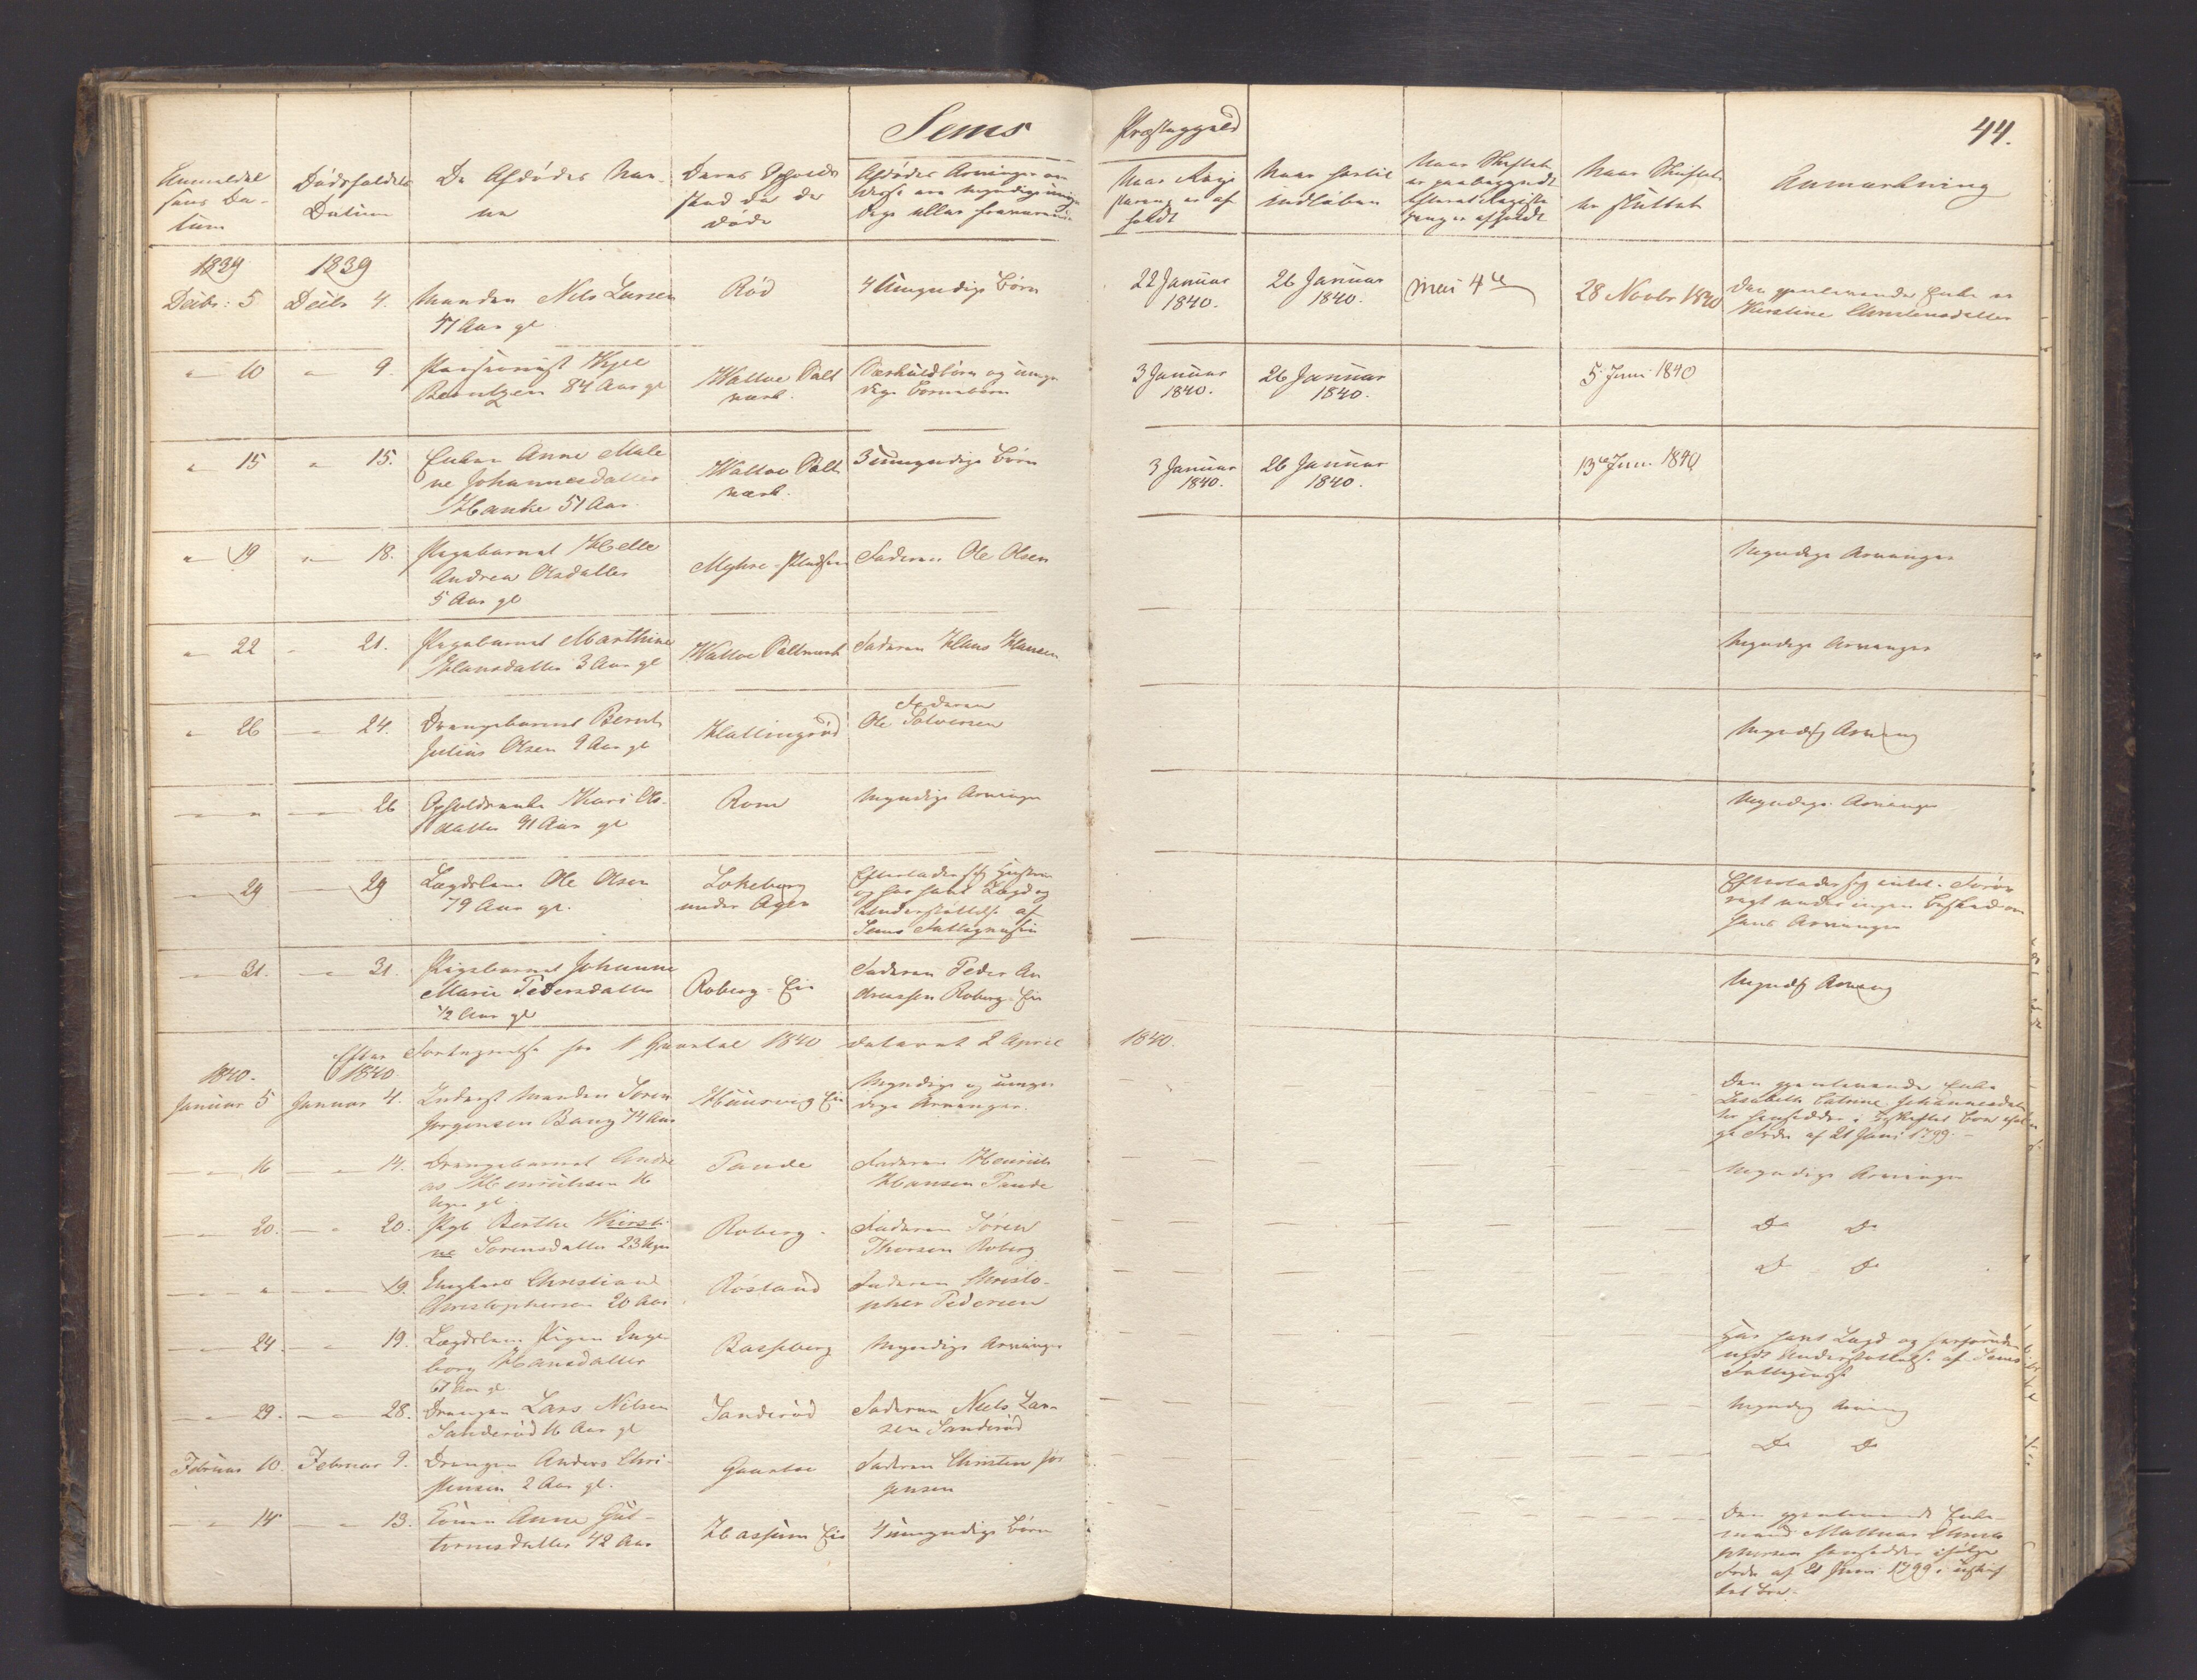 Sems Præstegjeld
44.
Anmeldel
sens Da-
tum
Dødsfaldets
Datum
De Afdødes Nav-
ne
Deres Opholds
sted da de
døde
Afdødes Arvinger om
disse ere myndige umyn
dige eller fraværende
Naar Regi
strering er af
holdt
Naar forlil
indløben
Naar Skiftet
er paabegyndt
efterat Registre
ring er afholdt
Naar Skiftet
er sluttet
Anmærkning
1839
1839
Decbr: 5
Decbr 4.
Manden Nils Larsen
47 Aar gl
Rød
4 Umyndige Børn
22 Januar
1840.
26 Januar
1840.
Mai 4de
28 Novbr 1840
Den gjenlevende Enke er
Kirstine Christensdatter
" 10
" 9.
Pensionist Kjel
Berntzen 84 Aar gl
Walloe Salt
værk.
Særkuldbørn og umyn
dige Børnebørn
3 Januar
1840.
26 Januar
1840.
5 Juni 1840
" 15
" 15.
Enken Anne Male
ne Johannesdatter
Hanke 51 Aar
Walloe Salt
værk.
3 umyndige Børn
3 Januar
1840.
26 Januar
1840.
13de Juni 1840
" 19
" 18.
Pigebarnet Helle
Andrea Olsdatter
5 Aar gl
Myhre-Pladsen
Faderen Ole Olsen
Myndige Arvinger
" 22
" 21.
Pigebarnet Marthine
Hansdatter 3 Aar gl
Walloe Saltværk
Faderen Hans Hansen
Myndige Arvinger
" 26
" 24.
Drengebarnet Bernt
Julius Olsen 9 Aar gl
Hallingrød
Faderen
Ole Salvesen
Myndig Arving
" "
" 26
Opholdsenke Kari Ols-
datter 91 Aar gl
Rom
Myndige Arvinger
Myndige Arvinger
" 29
29
Lægdslem Ole Olsen
79 Aar gl.
Lokeberg
under Agen
Efterlader sig Hustru
og har havt Lægd og
Understøttelse af
Sems Fattigvæsen
Efterlader sig intet. Forøv
rigt vides ingen Beskeed om
hans Arvinger
" 31.
" 31.
Pigebarnet Johanne
Marie Pedersdatter
1/2 Aar gl
Roberg-Eie
Faderen Peder An
dreassen Roberg-Eie
Myndig Arving
Efter Fortegnelse for 1 Qvartal 1840 dateret 2 April 1840.
1840.
1840
Januar 5
Januar 4.
Inderst Manden Søren
Jørgensen Bang 74 Aar
Huusvig Eie
Myndige og umyn
dige Arvinger.
Den gjenlevende Enke
Lisabeth Catrine Johannesdat
ter hensidder i uskiftet Boe iføl
ge Frdn af 21 Juni 1799.
" 16
" 14.
Drengebarnet Andre
as Henrichsen 16
Uger gl
Tande
Faderen Henrich
Hansen Tande
Myndige Arvinger
" 20.
" 20.
Pgb Berthe Kirsti
ne Sørensdatter 23 Uger
Roberg.
Faderen Søren
Thorsen Roberg
Do Do
" "
" 19.
Ungkarl Christian
Christophersen 20 Aar
Røsland
Faderen Christo-
pher Pedersen
Do Do
" 24.
" 19.
Lægdslem Pigen Inge
borg Hansdatter
67 Aar gl
Basberg
Myndige Arvinger
Har havt Lægd og
nydt Understøttelse af Sems
Fattigcasse
" 29.
" 28.
Drengen Lars Nilsen
Sanderød 16 Aar gl
Sanderød
Faderen Niels Lar-
sen Sanderød
Myndig Arving
Februar 10.
Februar 9.
Drengen Anders Chri-
stensen 2 Aar gl.
Gaarboe
Faderen Christen Jør
gensen
Do Do
" 14
" 13.
Konen Anne Gut-
tormsdatter 42 Aar
Hassum Eie
4 umyndige Børn
Den gjenlevende Enke-
mand Matthias Christo
phersen hensidder ifølge
Frdn af 21 Juni 1799 i uskif
tet Boe.